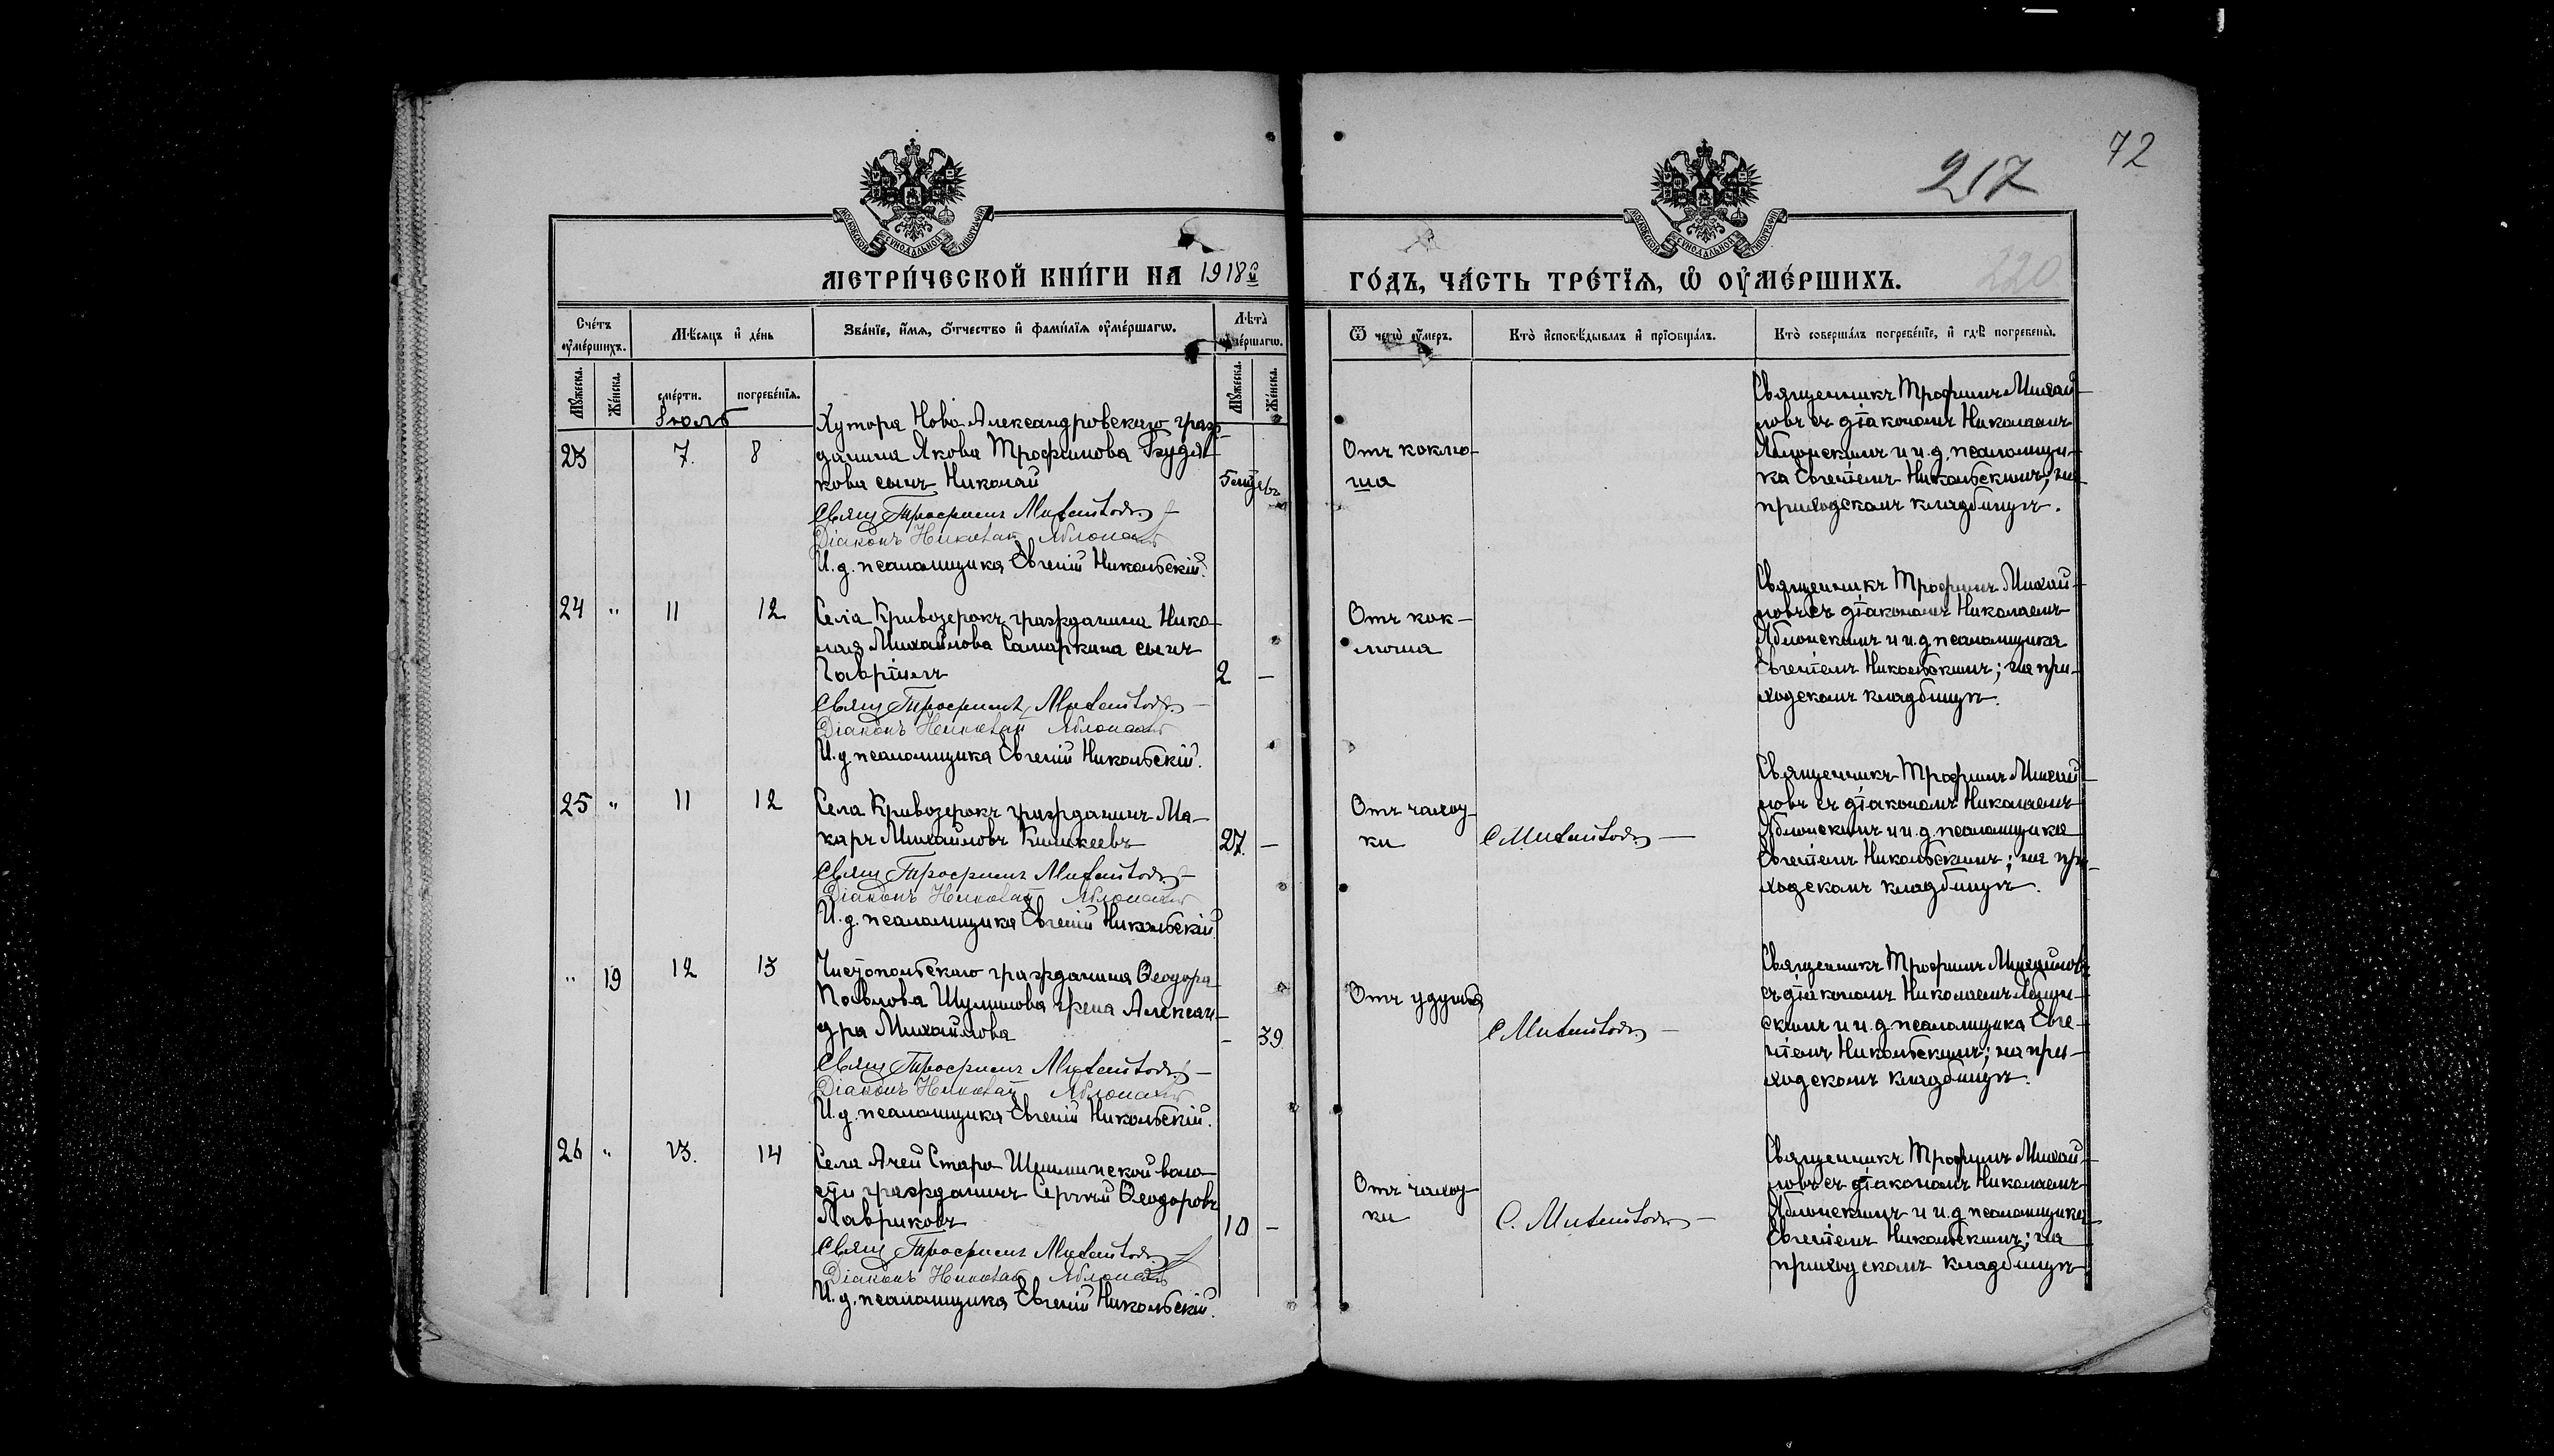 72
217
220
МОСКОВСКОЙ СѴНОДАЛЬНОЙ ТИПОГРАФІИ
МОСКОВСКОЙ СѴНОДАЛЬНОЙ ТИПОГРАФІИ
МЕТРИ́ЧЕСКОЙ КНИ́ГИ НА 1918й
ГО́ДЪ, ЧА́СТЬ ТРЕ́ТЇѦ, Ѡ҆ ОУ҆МЕ́РШИХЪ.
Сче́тъ оу҆ме́ршихъ.
Мѣ́сяцъ и҆ де́нь
Зва́нїе, и҆́мѧ, ѻ҆́тчество и҆ фами́лїѧ оу҆ме́ршагѡ.
Лѣ́та оу҆ме́ршагѡ.
Ѿ чегѡ̀ оу҆́меръ.
Кто̀ и҆сповѣ́дывалъ и҆ прїѡбща́лъ.
Кто̀ соверша́лъ погребе́нїе, и҆ гдѣ̀ погребены̀.
Мꙋ́жеска.
Же́нска.
сме́рти.
погребе́нїѧ.
Мꙋ́жеска.
Же́нска.
Іюль
23 7. 8
Хутора Ново-Александровскаго граж-
данина Якова Трофимова
кова сынъ Николай
5 мцевъ
Свящ Трофимъ Михайловъ
Діаконъ Николай Яблонскій
И. д. псаломщика Евгеній Никольскій.
Отъ коклю-
ша
Священникъ Трофимъ Михай-
ловъ съ діакономъ Николаемъ
Яблонскимъ и и. д. псаломщи-
ка Евгеніемъ Никольскимъ; на
приходскомъ кладбищѣ.
24 " 11 12
Села Кривозерокъ гражданина Нико-
лая Михайлова Самаркина сынъ
Гавріилъ
2 -
Свящ Трофимъ Михайловъ
Діаконъ Николай Яблонскій
И. д. псаломщика Евгеній Никольскій.
Отъ кок-
люша
Священникъ Трофимъ Михай-
ловъ съ діакономъ Николаемъ
Яблонскимъ и и. д. псаломщика
Евгеніемъ Никольскимъ; на при-
ходскомъ кладбищѣ.
25 " 11 12
Села Кривозерокъ гражданинъ Ма-
каръ Михайловъ Кишкеевъ
27. -
Свящ Трофимъ Михайловъ
Діаконъ Николай Яблонскій
И. д. псаломщика Евгеній Никольскій.
Отъ чахот-
ки
С Михайловъ
Священникъ Трофимъ Михай-
ловъ съ діакономъ Николаемъ
Яблонскимъ и и. д. псаломщика
Евгеніемъ Никольскимъ; на при-
ходскомъ кладбищѣ.
" 19 12 13
Чистопольскаго гражданина Ѳеодора
Павлова Шумилова жена Алексан-
дра Михайлова
- 39
Свящ Трофимъ Михайловъ
Діаконъ Николай Яблонскій
И. д. псаломщика Евгеній Никольскій.
Отъ удушья
С Михайловъ
Священникъ Трофимъ Михайловъ
съ діакономъ Николаемъ Яблон-
скимъ и и. д. псаломщика Евге-
ніемъ Никольскимъ; на при-
ходскомъ кладбищѣ.
26 " 13. 14
Села Ачей Старо-Шешминской воло-
сти гражданинъ Сергѣй Ѳеодоровъ
Лавриковъ
10 -
Свящ Трофимъ Михайловъ
Діаконъ Николай Яблонскій
И. д. псаломщика Евгеній Никольскій.
Отъ чахот-
ки
С. Михайловъ
Священникъ Трофимъ Михай-
ловъ съ діакономъ Николаемъ
Яблонскимъ и и. д. псаломщика
Евгеніемъ Никольскимъ; на
приходскомъ кладбищѣ